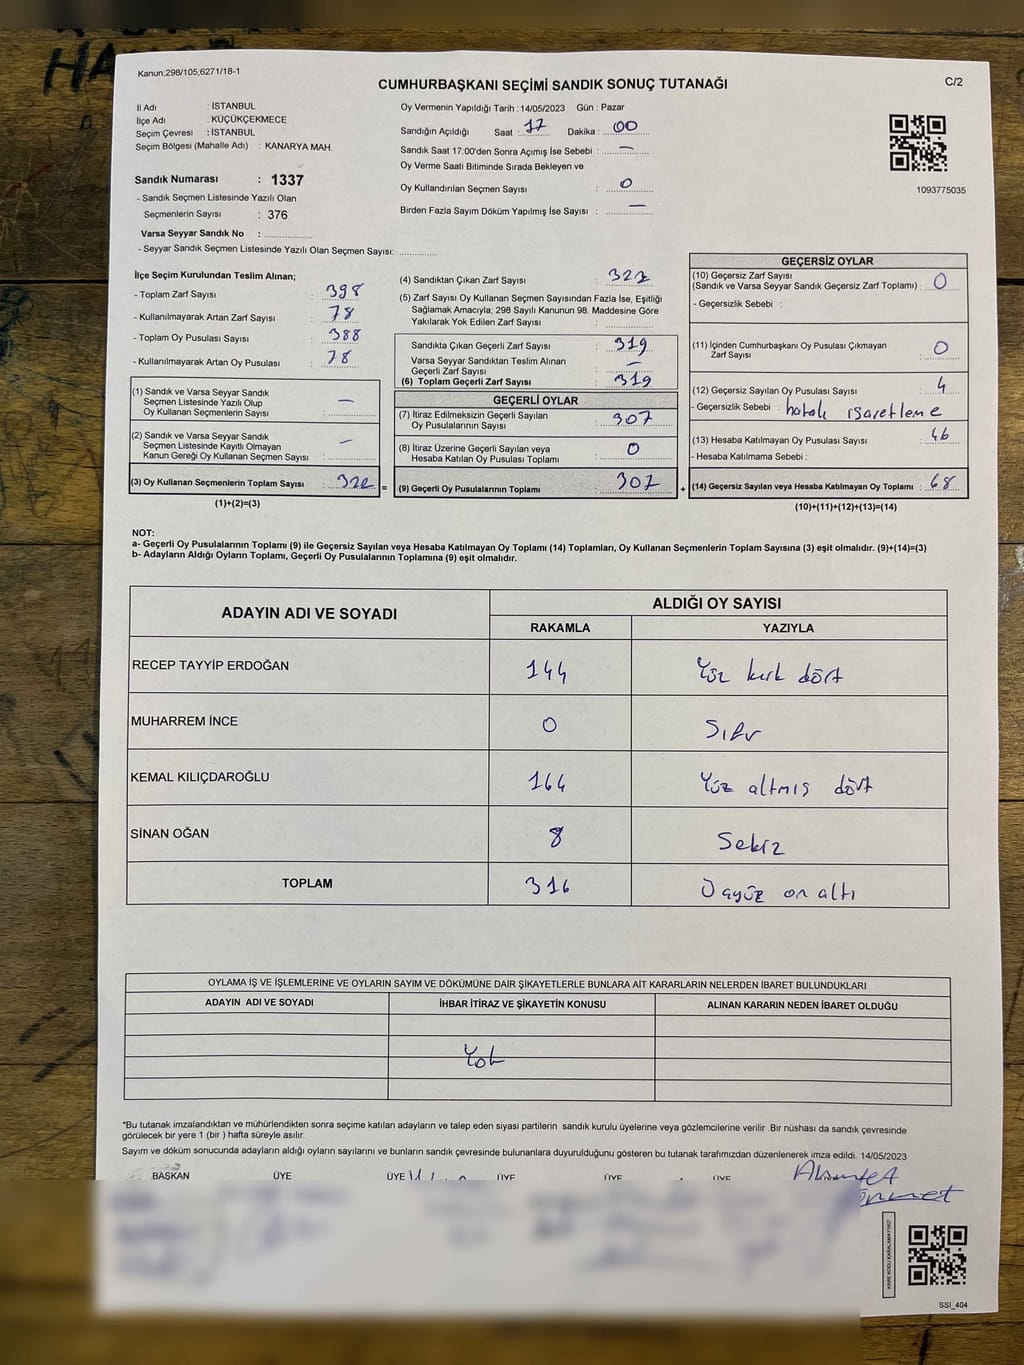 Kanun,298/105,6271/18-1
CUMHURBAŞKANI SEÇİMİ SANDIK SONUÇ TUTANAĞI
C/2
İl Adı : İSTANBUL
İlçe Adı : KÜÇÜKÇEKMECE
Seçim Çevresi : İSTANBUL
Seçim Bölgesi (Mahalle Adı) : KANARYA MAH.
Sandık Numarası : 1337
- Sandık Seçmen Listesinde Yazılı Olan
Seçmenlerin Sayısı : 376
Varsa Seyyar Sandık No :
- Seyyar Sandık Seçmen Listesinde Yazılı Olan Seçmen Sayısı:
Oy Vermenin Yapıldığı Tarih : 14/05/2023 Gün : Pazar
Sandığın Açıldığı Saat : 17 Dakika : 00
Sandık Saat 17:00'den Sonra Açımış İse Sebebi : —
Oy Verme Saati Bitiminde Sırada Bekleyen ve
Oy Kullandırılan Seçmen Sayısı : 0
Birden Fazla Sayım Döküm Yapılmış İse Sayısı : —
1093775035
İlçe Seçim Kurulundan Teslim Alınan;
- Toplam Zarf Sayısı : 398
- Kullanılmayarak Artan Zarf Sayısı : 78
- Toplam Oy Pusulası Sayısı : 388
- Kullanılmayarak Artan Oy Pusulası : 78
(1) Sandık ve Varsa Seyyar Sandık
Seçmen Listesinde Yazılı Olup
Oy Kullanan Seçmenlerin Sayısı : —
(2) Sandık ve Varsa Seyyar Sandık
Seçmen Listesinde Kayıtlı Olmayan
Kanun Gereği Oy Kullanan Seçmen Sayısı : —
(3) Oy Kullanan Seçmenlerin Toplam Sayısı : 322 =
(1)+(2)=(3)
(4) Sandıktan Çıkan Zarf Sayısı : 322
(5) Zarf Sayısı Oy Kullanan Seçmen Sayısından Fazla İse, Eşitliği
Sağlamak Amacıyla; 298 Sayılı Kanunun 98. Maddesine Göre
Yakılarak Yok Edilen Zarf Sayısı :
Sandıkta Çıkan Geçerli Zarf Sayısı : 319
Varsa Seyyar Sandıktan Teslim Alınan
Geçerli Zarf Sayısı : —
(6) Toplam Geçerli Zarf Sayısı : 319
GEÇERLİ OYLAR
(7) İtiraz Edilmeksizin Geçerli Sayılan
Oy Pusulalarının Sayısı : 307
(8) İtiraz Üzerine Geçerli Sayılan veya
Hesaba Katılan Oy Pusulası Toplamı : 0
(9) Geçerli Oy Pusulalarının Toplamı : 307 +
GEÇERSİZ OYLAR
(10) Geçersiz Zarf Sayısı
(Sandık ve Varsa Seyyar Sandık Geçersiz Zarf Toplamı) : 0
- Geçersizlik Sebebi :
(11) İçinden Cumhurbaşkanı Oy Pusulası Çıkmayan
Zarf Sayısı : 0
(12) Geçersiz Sayılan Oy Pusulası Sayısı : 4
- Geçersizlik Sebebi : hatalı işaretleme
(13) Hesaba Katılmayan Oy Pusulası Sayısı :
- Hesaba Katılmama Sebebi :
(14) Geçersiz Sayılan veya Hesaba Katılmayan Oy Toplamı : 68
(10)+(11)+(12)+(13)=(14)
NOT:
a- Geçerli Oy Pusulalarının Toplamı (9) ile Geçersiz Sayılan veya Hesaba Katılmayan Oy Toplamı (14) Toplamları, Oy Kullanan Seçmenlerin Toplam Sayısına (3) eşit olmalıdır. (9)+(14)=(3)
b- Adayların Aldığı Oyların Toplamı, Geçerli Oy Pusulalarının Toplamına (9) eşit olmalıdır.
ADAYIN ADI VE SOYADI
ALDIĞI OY SAYISI
RAKAMLA YAZIYLA
RECEP TAYYİP ERDOĞAN 144 Yüz kırk dört
MUHARREM İNCE 0 Sıfır
KEMAL KILIÇDAROĞLU 164 Yüz altmış dört
SİNAN OĞAN 8 Sekiz
TOPLAM 316 Üçyüz on altı
OYLAMA İŞ VE İŞLEMLERİNE VE OYLARIN SAYIM VE DÖKÜMÜNE DAİR ŞİKAYETLERLE BUNLARA AİT KARARLARIN NELERDEN İBARET BULUNDUKLARI
ADAYIN ADI VE SOYADI İHBAR İTİRAZ VE ŞİKAYETİN KONUSU ALINAN KARARIN NEDEN İBARET OLDUĞU
Yok
*Bu tutanak imzalandıktan ve mühürlendikten sonra seçime katılan adayların ve talep eden siyasi partilerin sandık kurulu üyelerine veya gözlemcilerine verilir .Bir nüshası da sandık çevresinde
görülecek bir yere 1 (bir ) hafta süreyle asılır.
Sayım ve döküm sonucunda adayların aldığı oyların sayılarını ve bunların sandık çevresinde bulunanlara duyurulduğunu gösteren bu tutanak tarafımızdan düzenlenerek imza edildi. 14/05/2023
BAŞKAN ÜYE ÜYE ÜYE ÜYE ÜYE
SSİ_404